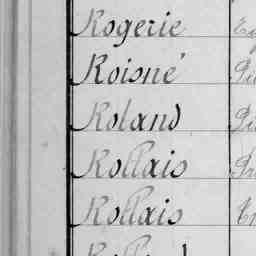 Rogerie
Roisné
Roland
Rollais
Rollais